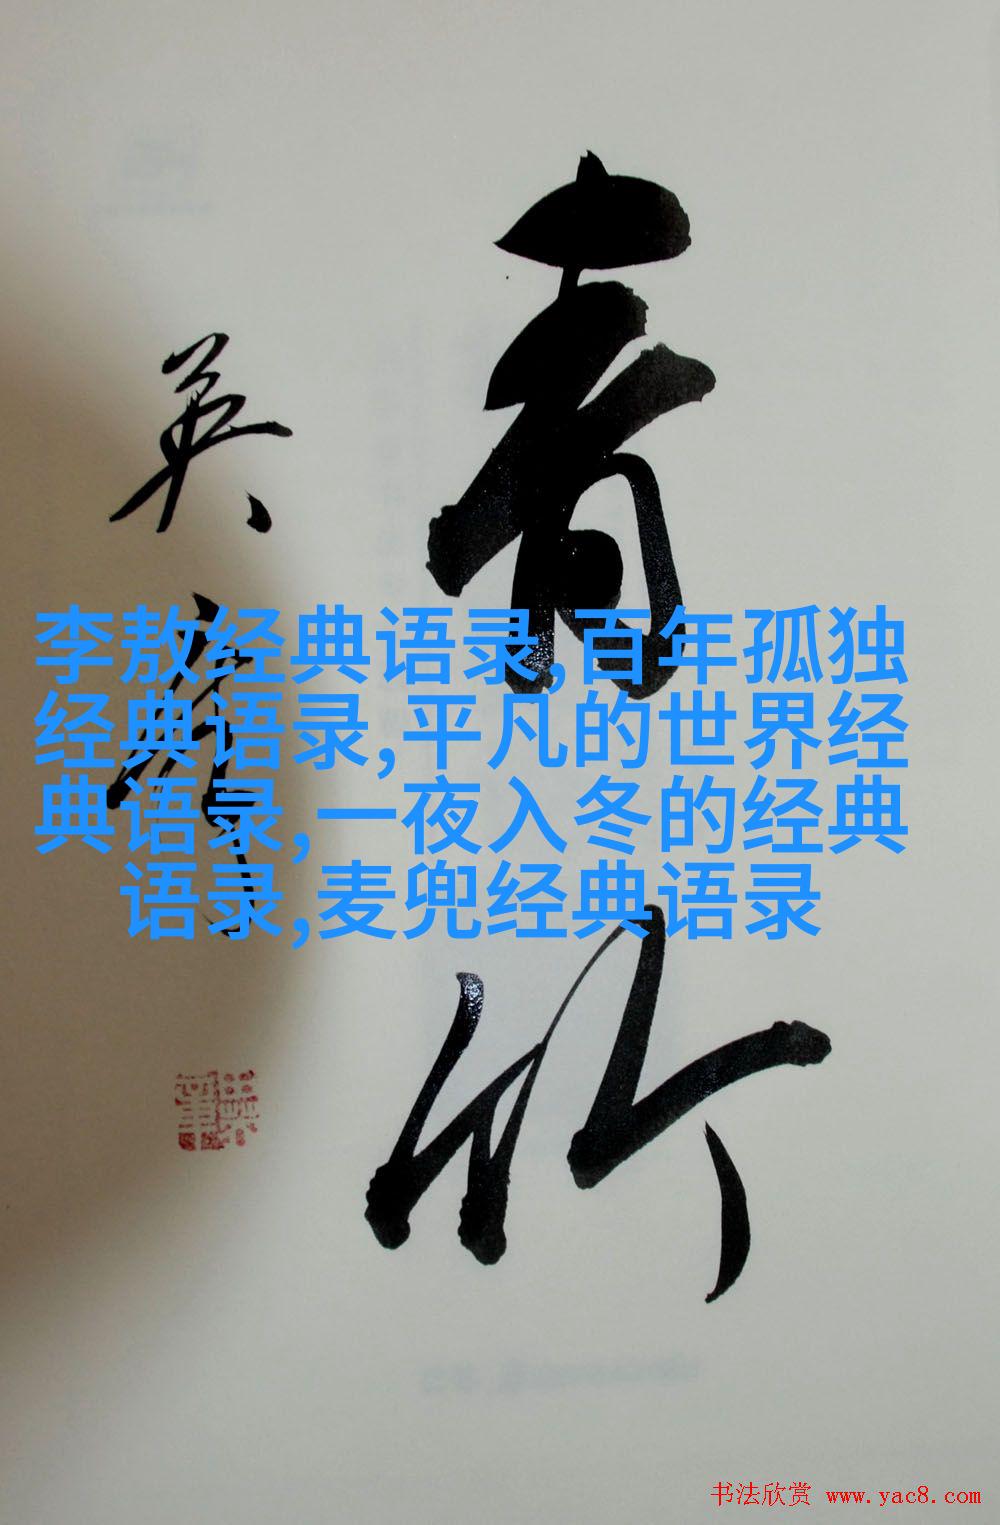 青竹
英彦
李敖经典语录,百年孤独
经典语录,平凡的世界经
典语录,一夜入冬的经典
语录,麦兜经典语录
书法欣赏 www.yac8.com